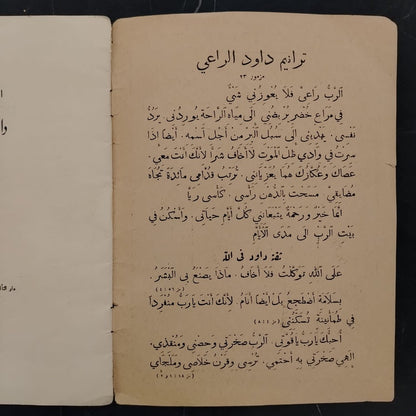 ترانيم داود الراعي
مزمور ٢٣
اَلرَّبُّ رَاعِيَّ فَلَا يُعْوِزُنِي شَيْءٌ
فِي مَرَاعٍ خُضْرٍ يُرْبِضُنِي إِلَى مِيَاهِ الرَّاحَةِ يُورِدُنِي. يَرُدُّ
نَفْسِي. يَهْدِينِي إِلَى سُبُلِ الْبِرِّ مِنْ أَجْلِ اسْمِهِ. أَيْضًا إِذَا
سِرْتُ فِي وَادِي ظِلِّ الْمَوْتِ لَا أَخَافُ شَرًّا لِأَنَّكَ أَنْتَ مَعِي.
عَصَاكَ وَعُكَّازُكَ هُمَا يُعَزِّيَانِنِي. تُرَتِّبُ قُدَّامِي مَائِدَةً تُجَاهَ
مُضَايِقِيَّ. مَسَحْتَ بِالدُّهْنِ رَأْسِي. كَأْسِي رَيَّا
إِنَّمَا خَيْرٌ وَرَحْمَةٌ يَتْبَعَانِنِي كُلَّ أَيَّامِ حَيَاتِي. وَأَسْكُنُ فِي
بَيْتِ الرَّبِّ إِلَى مَدَى الْأَيَّامِ
ثقة داود في الله
عَلَى اللهِ تَوَكَّلْتُ فَلَا أَخَافُ. مَاذَا يَصْنَعُ بِي الْبَشَرُ.
بِسَلَامَةٍ أَضْطَجِعُ بَلْ أَيْضًا أَنَامُ. لِأَنَّكَ أَنْتَ يَا رَبُّ مُنْفَرِدًا
فِي طُمَأْنِينَةٍ تُسَكِّنُنِي (مز ٤: ٨)
أُحِبُّكَ يَا رَبُّ يَا قُوَّتِي. اَلرَّبُّ صَخْرَتِي وَحِصْنِي وَمُنْقِذِي.
إِلهِي صَخْرَتِي بِهِ أَحْتَمِي. تُرْسِي وَقَرْنُ خَلَاصِي وَمَلْجَايَ